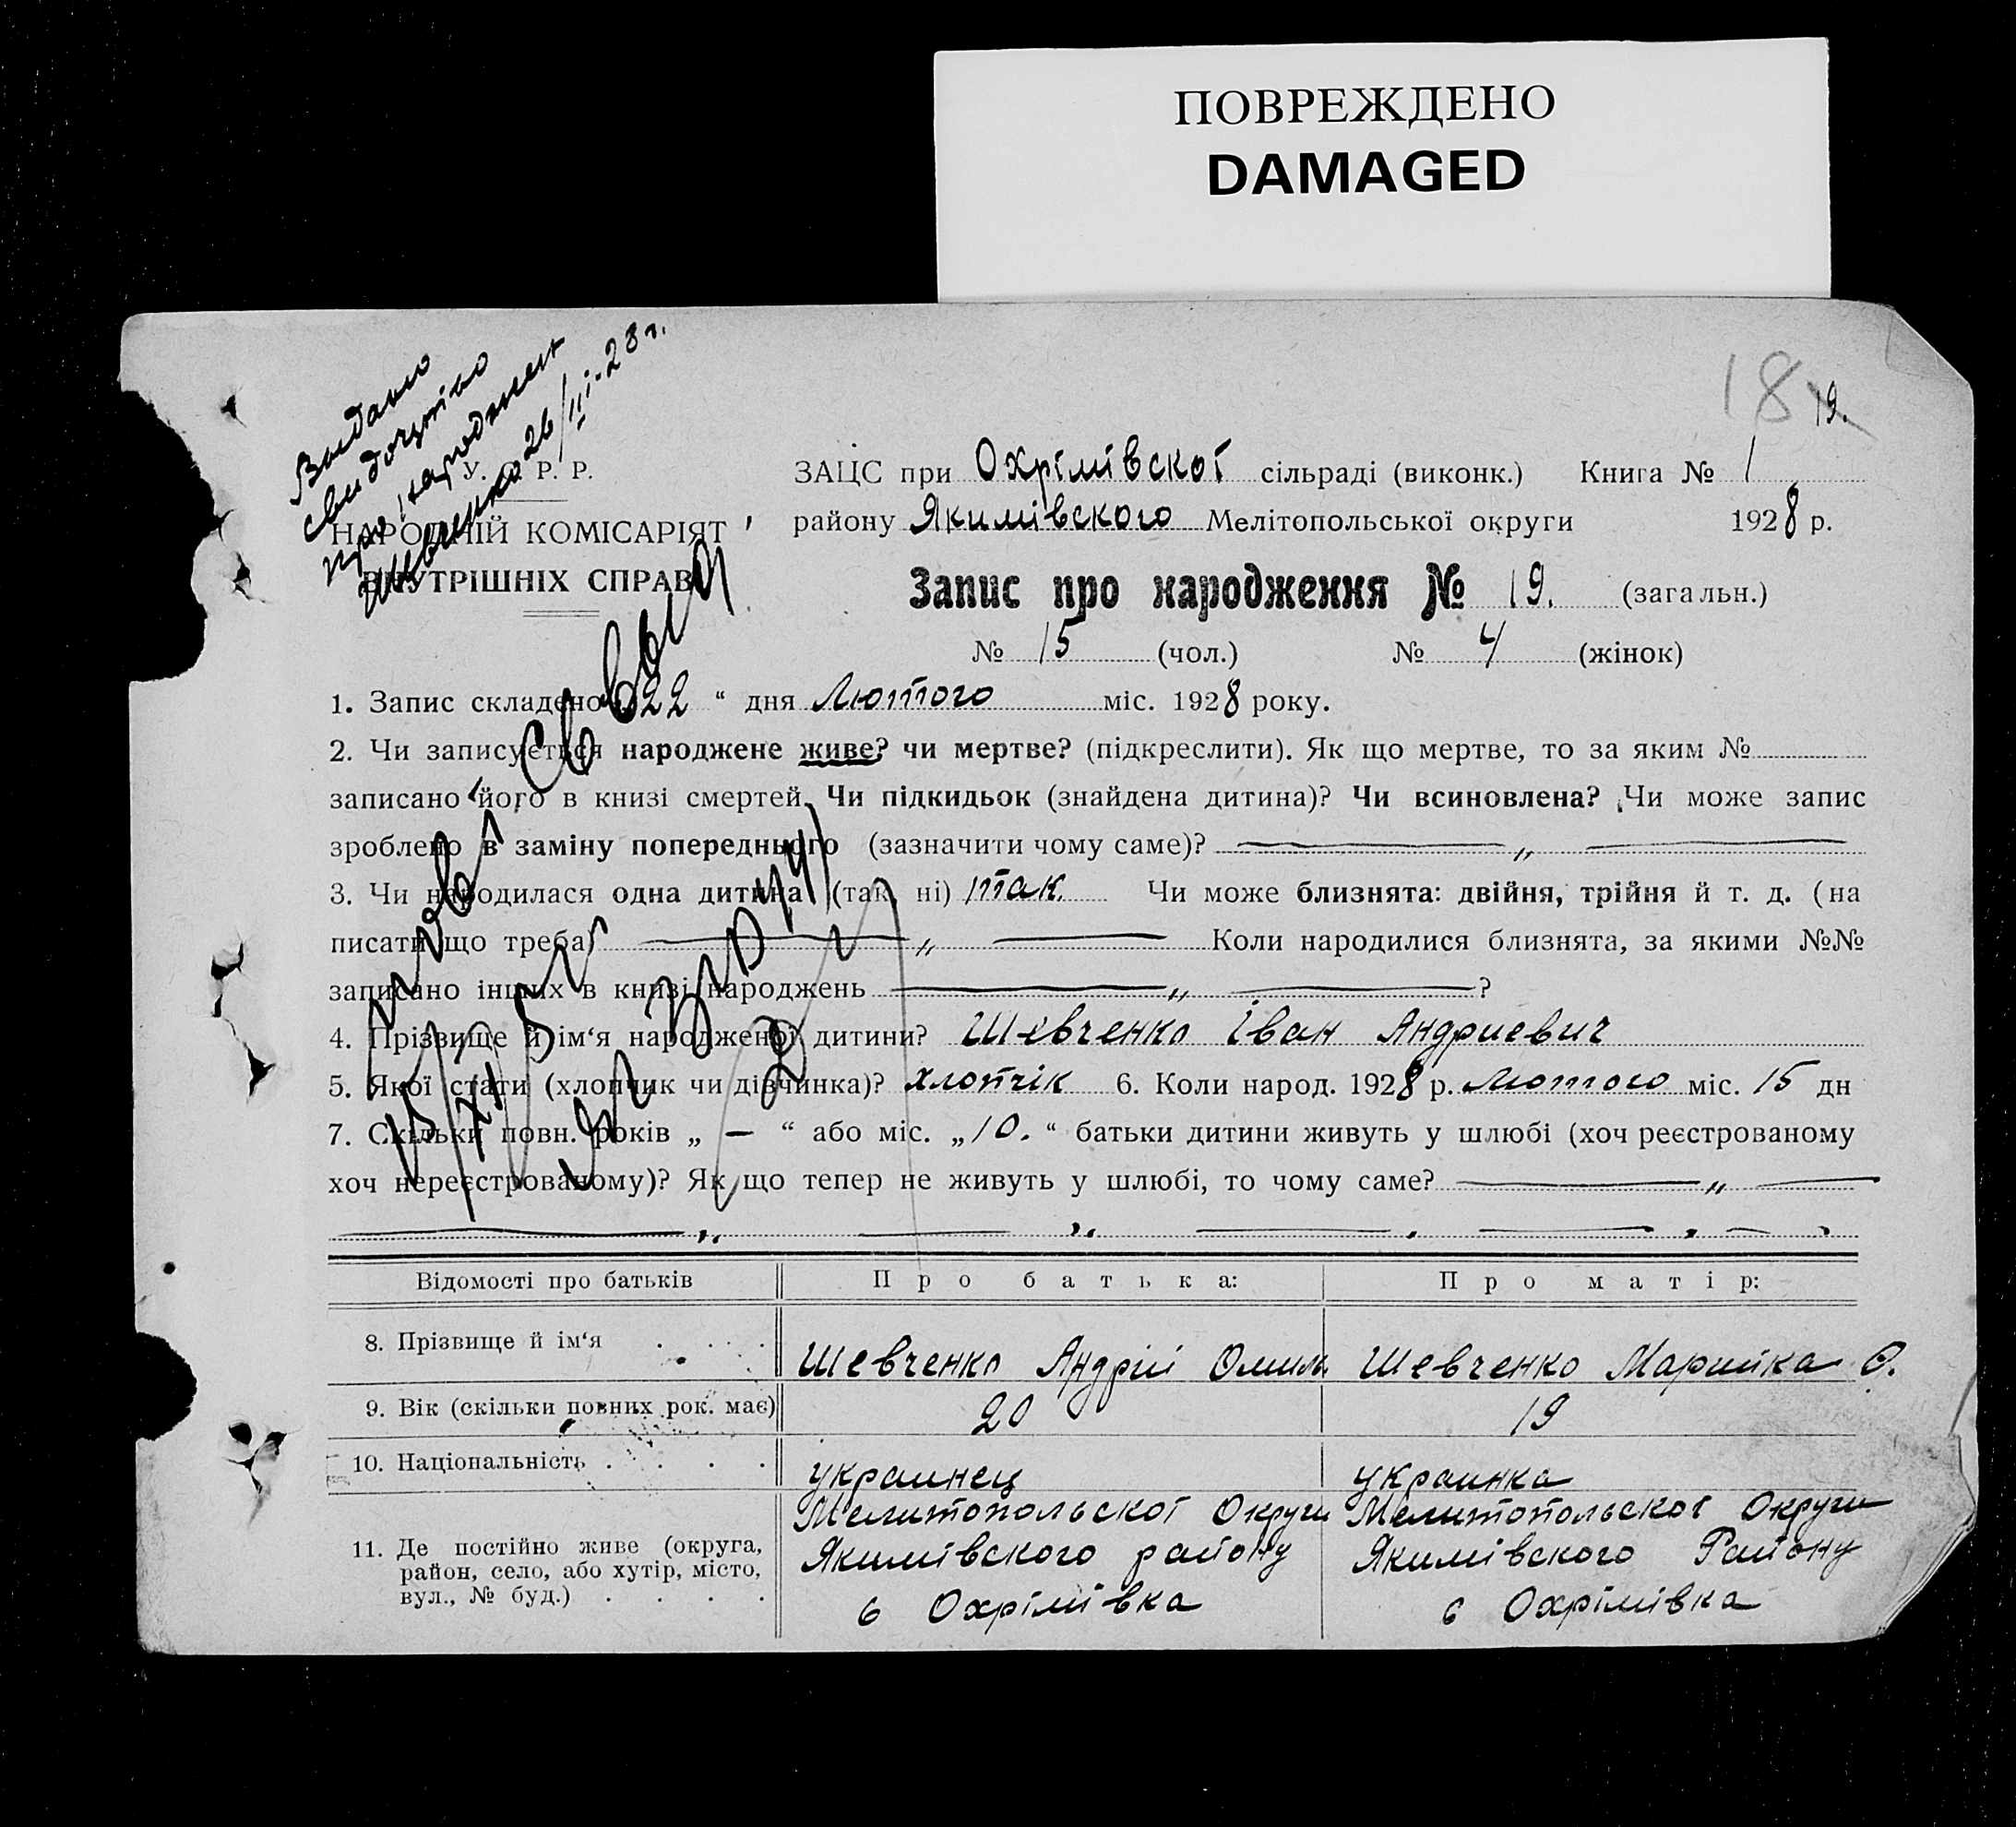 ПОВРЕЖДЕНО
DAMAGED
18 19.
Видано
свидоцтво
про народжен
Шевченко 26/III-28 г.
У. С. Р. Р.
НАРОДНІЙ КОМІСАРІЯТ
ВНУТРІШНІХ СПРАВ
ЗАЦС при Охрімівскої сільраді (виконк.) Книга № 1
району Якимівского Мелітопольської округи 1928 р.
Запис про народження № 19. (загальн.)
№ 15 (чол.) № 4 (жінок)
1. Запис складено „22 “ дня Лютого міс. 1928 року.
2. Чи записується народжене живе? чи мертве? (підкреслити). Як що мертве, то за яким №
записано його в книзі смертей. Чи підкидьок (знайдена дитина)? Чи всиновлена? Чи може запис
зроблено в заміну попереднього (зазначити чому саме)? — „ —
3. Чи народилася одна дитина (так, ні) так. Чи може близнята: двійня, трійня й т. д. (на
писати що треба) — „ — Коли народилися близнята, за якими №№
записано інших в книзі народжень — „ — ?
4. Прізвище й ім‘я народженої дитини? Шевченко Іван Андриевич
5. Якої стати (хлопчик чи дівчинка)? хлопчік 6. Коли народ. 1928 р. Лютого міс. 15 дн
7. Скільки повн. років „ — “ або міс. „ 10. “ батьки дитини живуть у шлюбі (хоч реєстрованому
хоч нереєстрованому)? Як що тепер не живуть у шлюбі, то чому саме? — „ —
Відомості про батьків Про батька: Про матір:
8. Прізвище й ім‘я . . . Шевченко Андрій Шевченко Марийка О.
9. Вік (скільки повних рок. має) 20 19
10. Національність . . . . украинец украинка
11. Де постійно живе (округа, район, село, або хутір, місто, вул., № буд.) . . . .
Мелитопольскої Округи Мелитопольскої Округи
Якимівского району Якимівского Району
с Охрімівка с Охрімівка